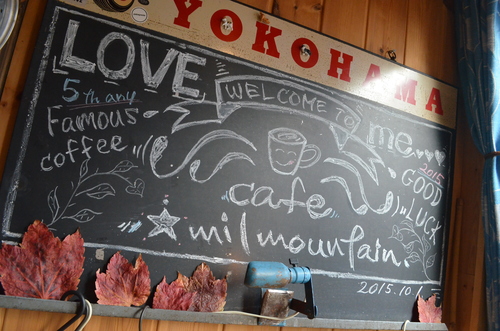 YOKOHAMA
LOVE
5th any
Famous
coffee
WELCOME TO
me...
2015
GOOD
LUCK
cafe
milmountain.
2015.10.1